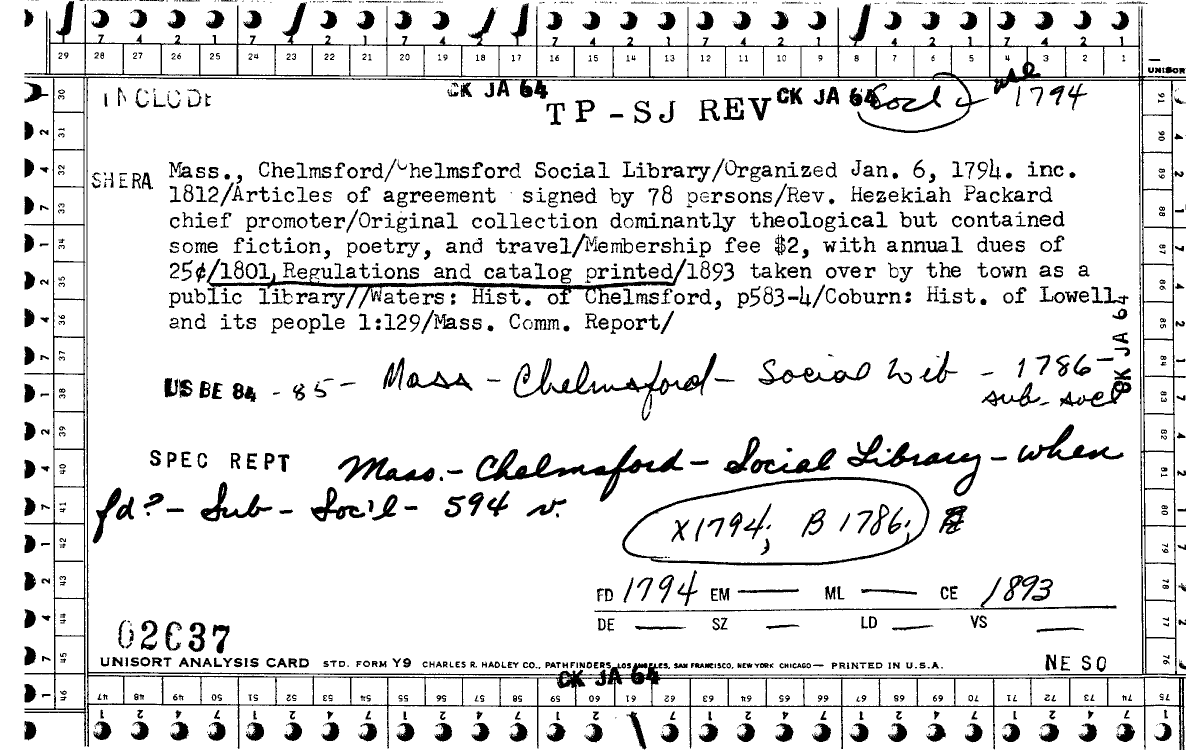 7 4 2 1 7 4 2 1 7 4 2 1 7 4 2 1 7 4 2 1 7 4 2 1 7 4 2 1
29 28 27 26 25 24 23 22 21 20 19 18 17 16 15 14 13 12 11 10 9 8 7 6 5 4 3 2 1
UNISORT
INCLUDE CK JA 64 TP-SJ REV CK JA 64 Socl use 1794
SHERA Mass., Chelmsford/Chelmsford Social Library/Organized Jan. 6, 1794. inc.
1812/Articles of agreement signed by 78 persons/Rev. Hezekiah Packard
chief promoter/Original collection dominantly theological but contained
some fiction, poetry, and travel/Membership fee $2, with annual dues of
25¢/1801, Regulations and catalog printed/1893 taken over by the town as a
public library//Waters: Hist. of Chelmsford, p583-4/Coburn: Hist. of Lowell
and its people 1:129/Mass. Comm. Report/
CK JA 64
US BE 84 - 85 - Mass - Chelmsford - Social Lib - 1786 -
sub - socl
SPEC REPT Mass. - Chelmsford - Social Library - when
fd? - Sub - Soc'l - 594 v.
X1794; B 1786;
FD 1794 EM — ML — CE 1893
DE — SZ — LD — VS —
02637
UNISORT ANALYSIS CARD STD. FORM Y9 CHARLES R. HADLEY CO., PATHFINDERS, LOS ANGELES, SAN FRANCISCO, NEW YORK CHICAGO — PRINTED IN U.S.A.
NE SO
CK JA 64
30 31 32 33 34 35 36 37 38 39 40 41 42 43 44 45 46
91 90 89 88 87 86 85 84 83 82 81 80 79 78 77 76
47 48 49 50 51 52 53 54 55 56 57 58 59 60 61 62 63 64 65 66 67 68 69 70 71 72 73 74 75